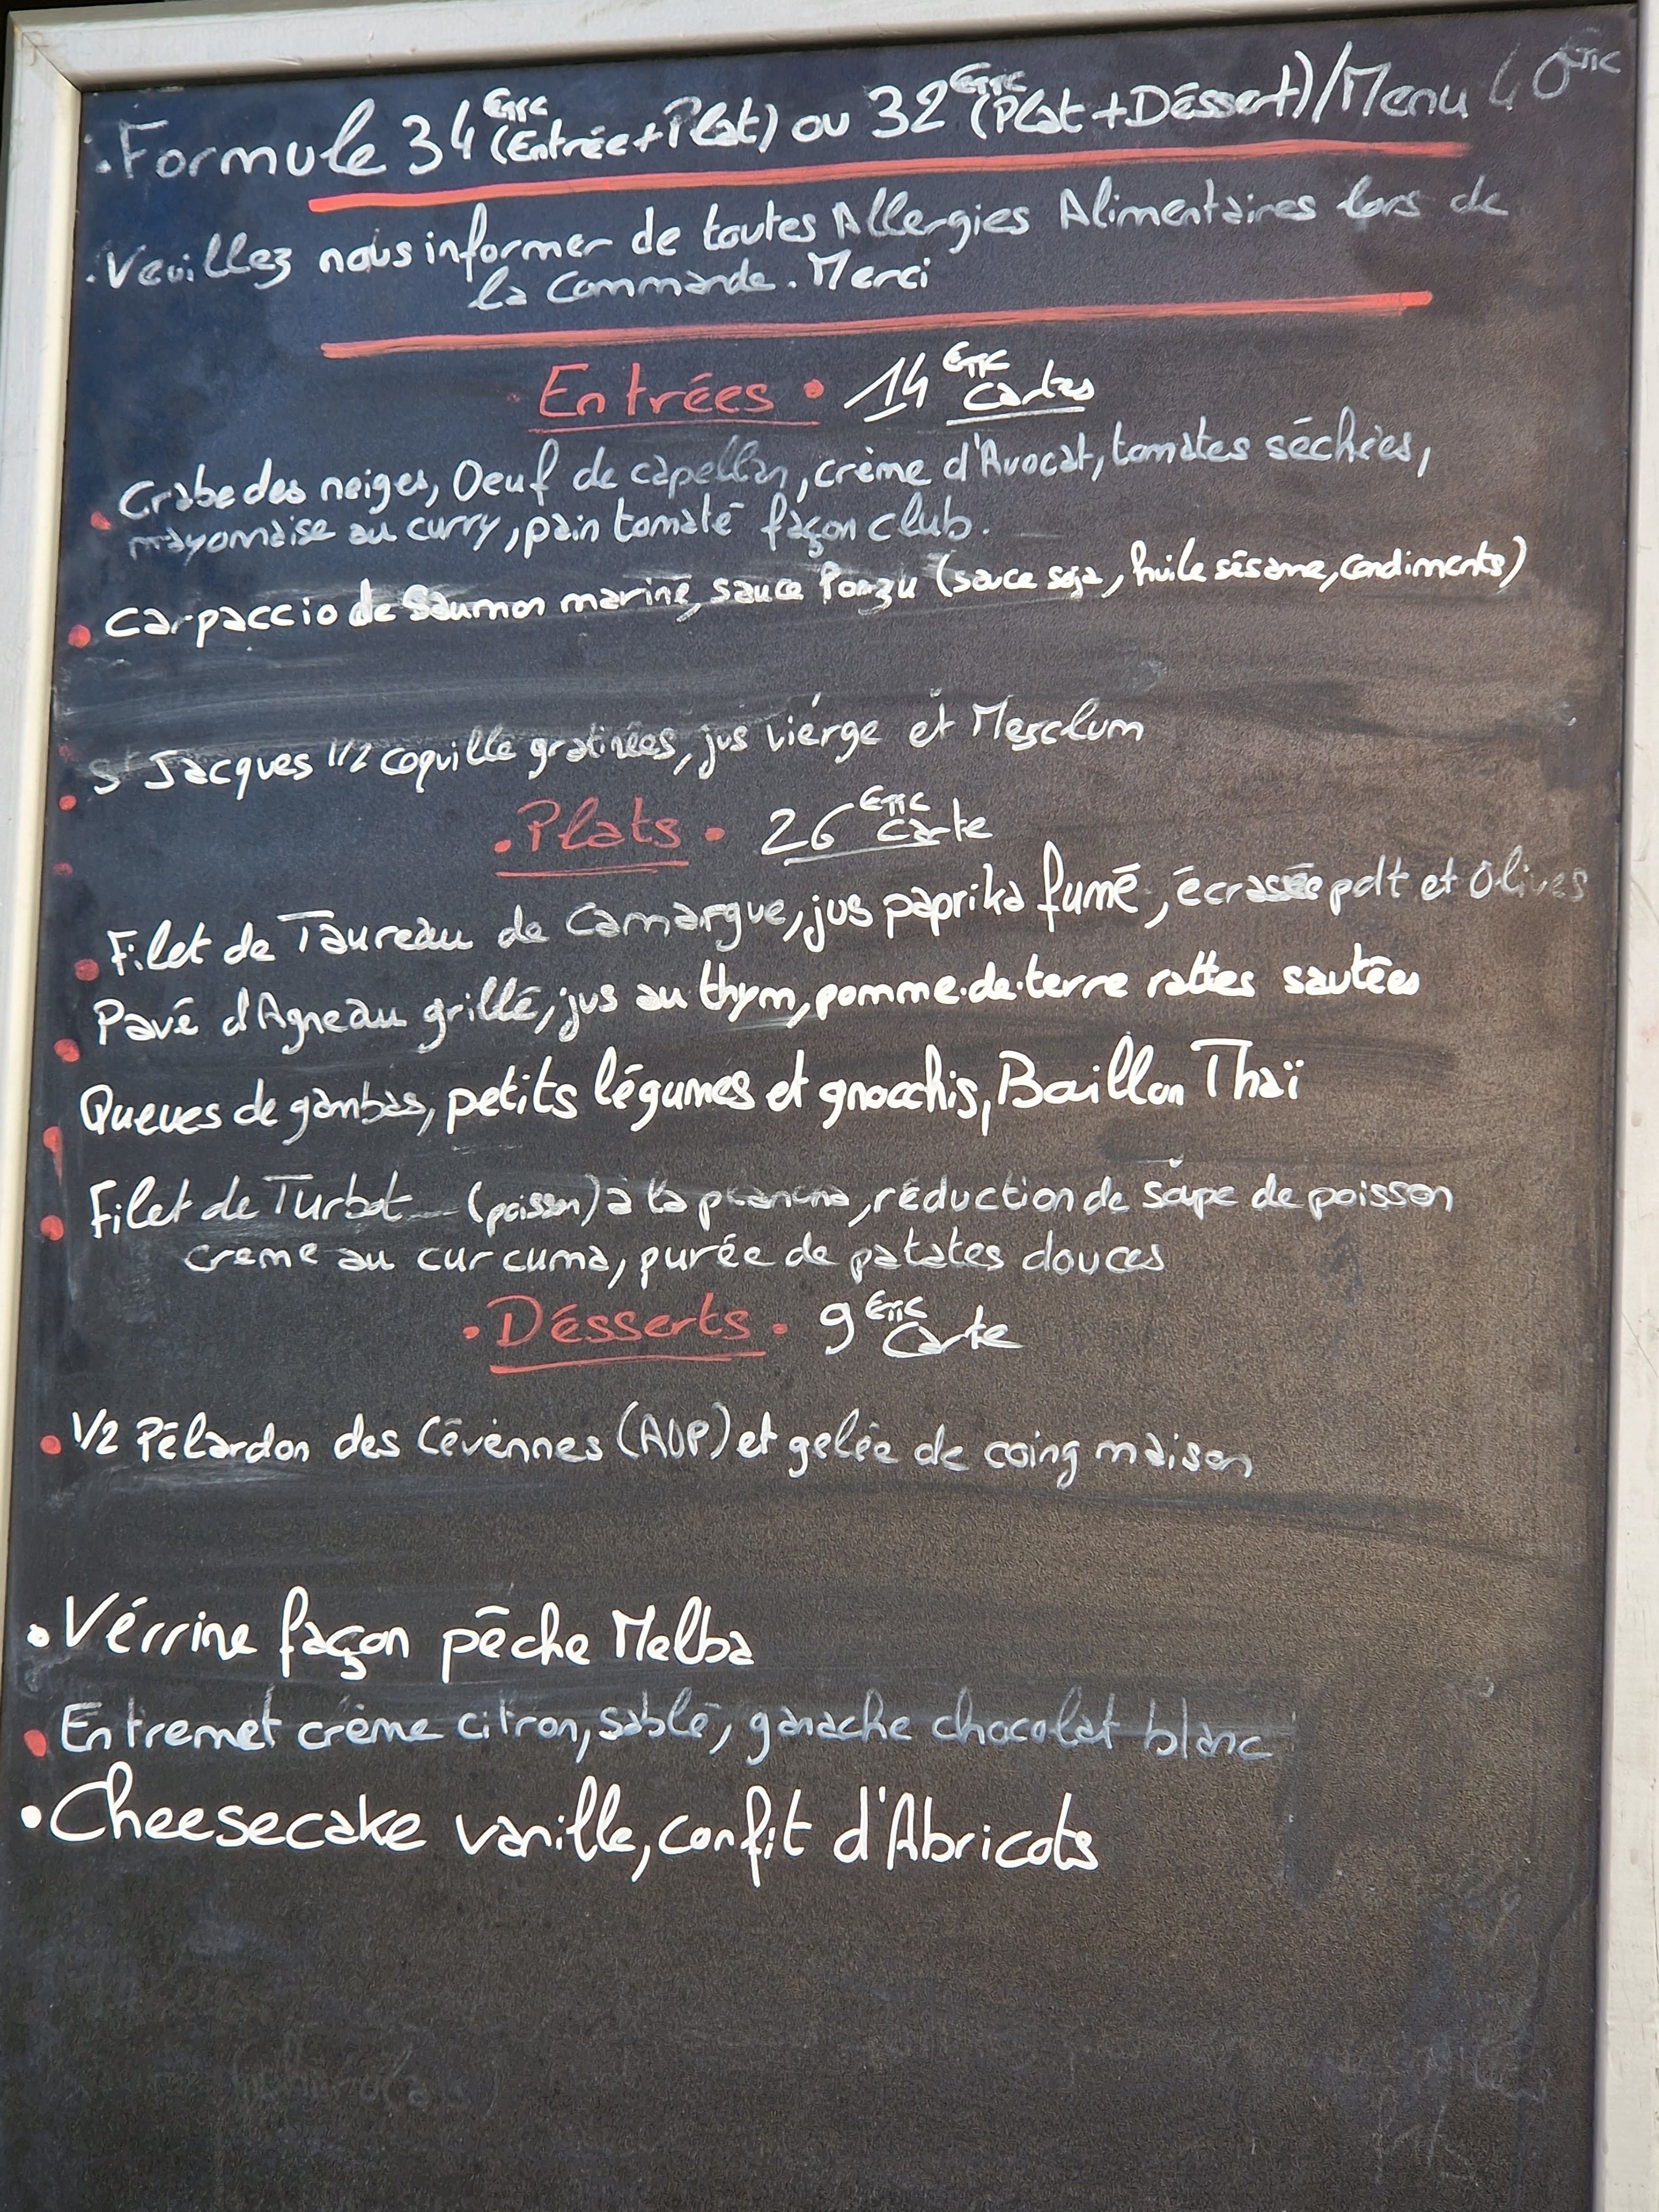 . Formule 34 €TTC (Entrée+Plat) ou 32 €TTC (Plat+Déssert)/Menu 40 €TTC
. Veuillez nous informer de toutes Allergies Alimentaires lors de
la Commande. Merci
Entrées • 14 €TTC Cartes
• Crabe des neiges, Oeuf de capellan, crème d'Avocat, tomates séchées,
mayonnaise au curry, pain tomaté façon club.
• Carpaccio de Saumon mariné, sauce Ponzu (sauce soja, huile sésame, condiments)
• St Jacques 1/2 coquille gratinées, jus viérge et Mesclum
• Plats • 26 €TTC Carte
• Filet de Taureau de Camargue, jus paprika fumé, écrasée pdt et Olives
• Pavé d'Agneau grillé, jus au thym, pomme.de.terre rattes sautées
Queues de gambas, petits légumes et gnocchis, Bouillon Thaï
• Filet de Turbot (poisson) à la plancha, réduction de soupe de poisson
creme au curcuma, purée de patates douces
• Désserts • 9 €TTC Carte
• 1/2 Pélardon des Cévennes (AOP) et gelée de coing maison
• Vérrine façon pêche Melba
• Entremet crème citron, sablé, ganache chocolat blanc
• Cheesecake vanille, confit d'Abricots